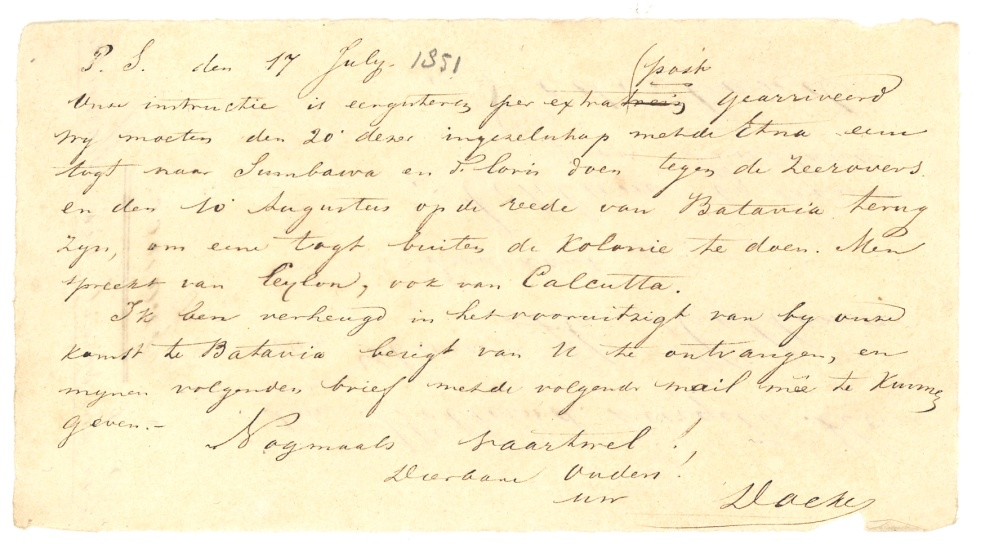 P. S. den 17 July. 1851
(post
Onze instructie is eergisteren per extra trein gearriveerd
wy moeten den 20e dezer ingezelschap metde Etna eene
togt naar Sumbawa en Floris doen tegen de Zeerovers
en den 10e Augustus op de reede van Batavia terug
zyn, om eene togt buiten de Kolonie te doen. Men
spreekt van Ceylon, ook van Calcutta.
Ik ben verheugd in het vooruitzigt van by onze
komst te Batavia berigt van U te ontvangen, en
mynen volgenden brief metde volgende mail mêe te kunnen
geven.-
Nogmaals vaartwel!
Dierbare Ouders!
uw